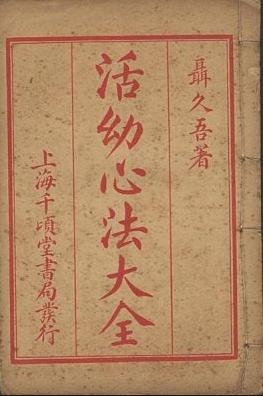 聶久吾著
活幼心法大全
上海千頃堂書局發行